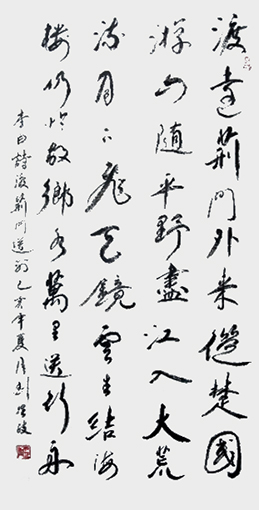 渡遠荊門外来從楚國
游山随平野盡江入大荒
流月下飛天鏡雲生結海
樓仍憐故鄉水萬里送行舟
李白詩渡荊門送別己亥年夏月